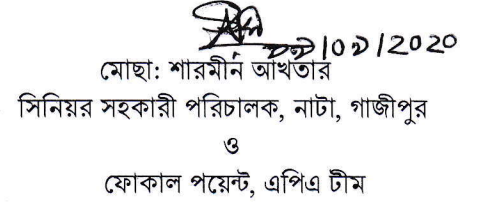 /2020
মোছা: শারমীন আখতার
সিনিয়র সহকারী পরিচালক, নাটা, গাজীপুর
ও
ফোকাল পয়েন্ট, এপিএ টীম